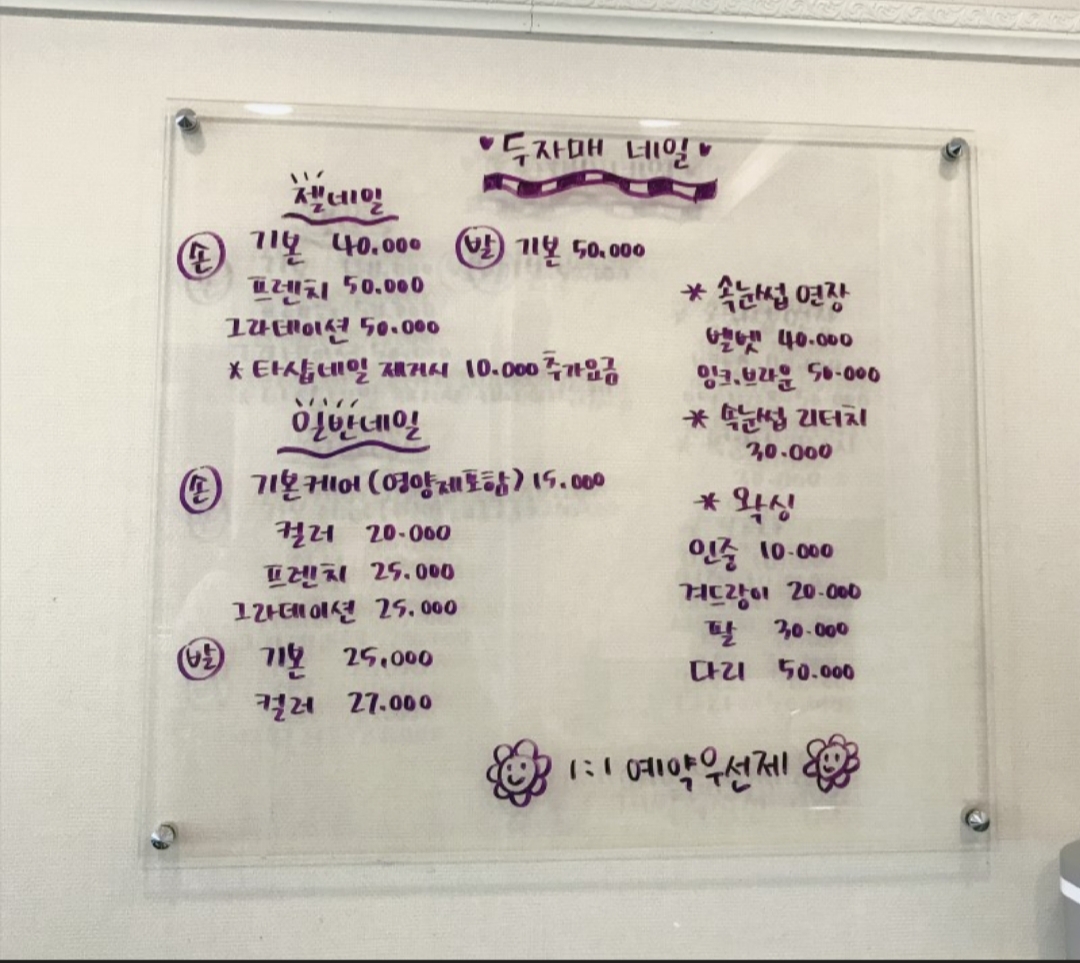 ♥두자매 네일♥
젤네일
손 기본 40.000
프렌치 50.000
그라데이션 50.000
* 타샵네일 제거시 10.000 추가요금
발 기본 50.000
일반네일
손 기본케어(영양제포함) 15.000
컬러 20.000
프렌치 25.000
그라데이션 25.000
발 기본 25.000
컬러 27.000
* 속눈썹 연장
벨벳 40.000
밍크.브라운 50.000
* 속눈썹 리터치
30.000
* 왁싱
인중 10.000
겨드랑이 20.000
팔 30.000
다리 50.000
1:1 예약우선제